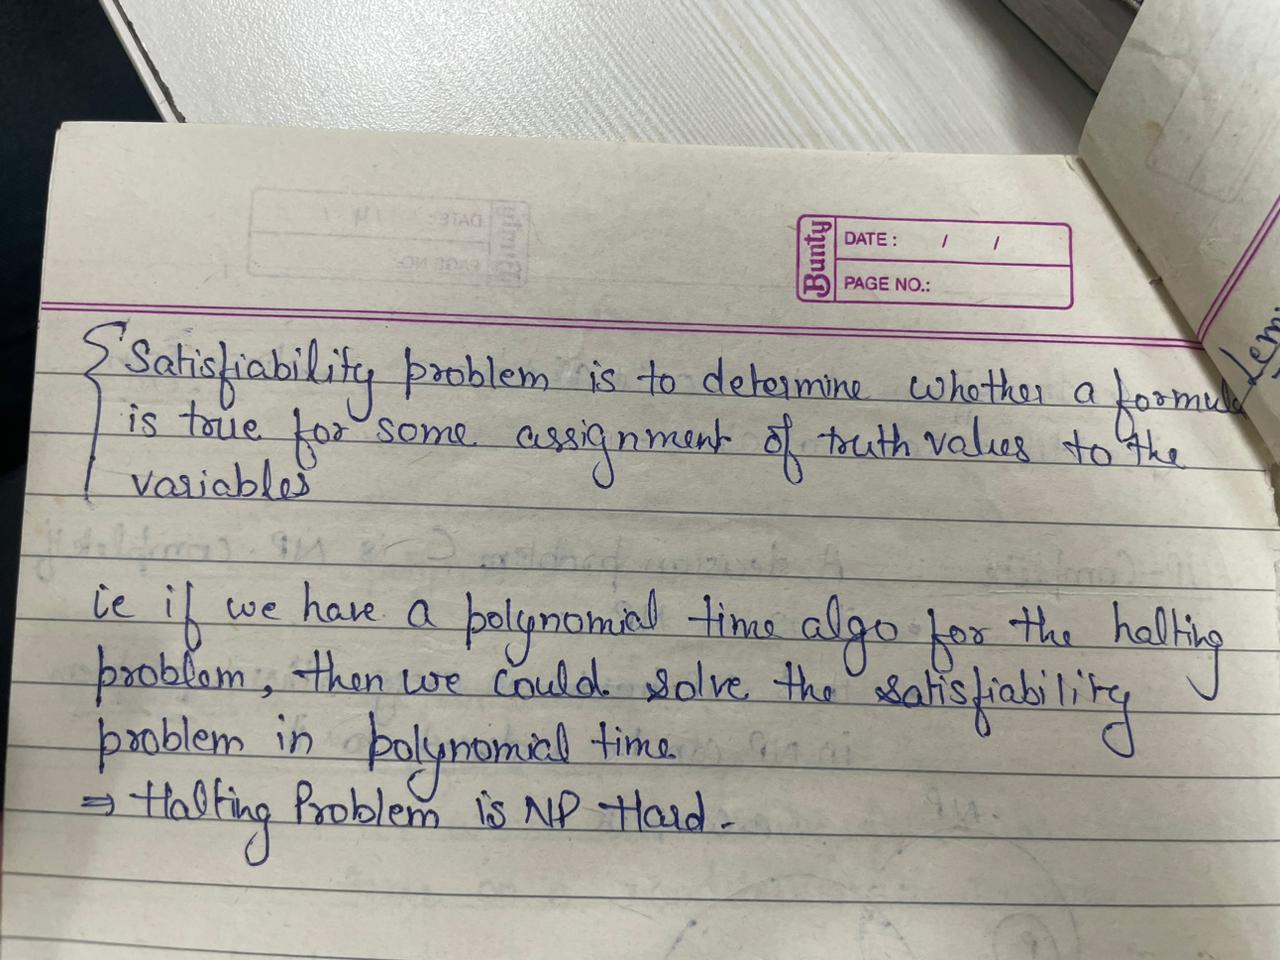 Bunty
DATE: / /
PAGE NO.:
Satisfiability problem is to determine whether a formula
is true for some assignment of truth values to the
variables
ie if we have a polynomial time algo for the halting
problem, then we could solve the satisfiability
problem in polynomial time
⇒ Halting Problem is NP Hard.